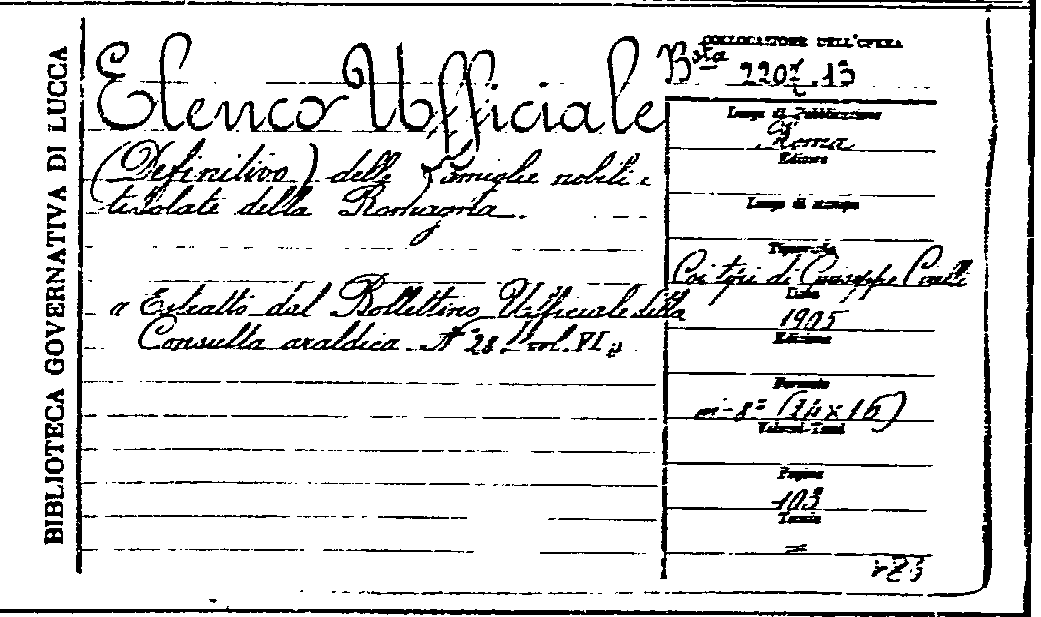 BIBLIOTECA GOVERNATIVA DI LUCCA
Elenco Ufficiale
(Definitivo) delle Famiglie nobili e
titolate della Romagna.
« Estratto dal Bollettino Ufficiale della
Consulta araldica N° 28 vol. VI »
COLLOCAZIONE DELL'OPERA
Bsta 2207.13
Luogo di Pubblicazione
Roma
Editore
Luogo di stampa
Tipografia
Coi tipi di Giuseppe Civelli
Data
1905
Edizione
Formato
in-8° (24x16)
Volumi-Tomi
Pagine
103
Tavole